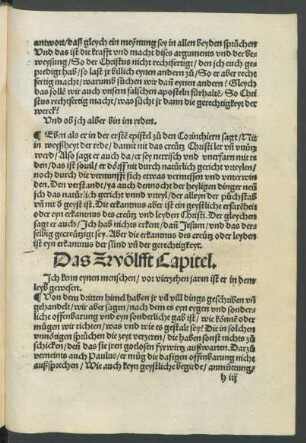 antwort/ daß gleych ein meynung sey in allen beyden sprüchen
Und das ist die krafft vnd macht diser arguments vnd der be-
weysung/ So der Christus nicht rechtfertigt/ den ich euch ge-
prediget hab/ so last je billich eynen andern zu/ So er aber recht
fertig macht/ warumb suchen wir dañ eynen andern/ Gleych
das solle wir auch vnsern falschen apostelen fürhalte/ So Chri
stus rechtfertig macht/ was sucht je dann die gerechtigkeyt der
werck?
Und ob ich alber bin im reden.
¶ Eben als er in der erste epistel zu den Corinthiern sagt/ Nit
in weyßheyt der rede/ damit nit das creütz Christi ler vñ vnütz
werd/ Also sage er auch da/ er sey nerrisch vnd vnerfarn mit re
den/ das ist souil/ er dörff nit durch natürlich gericht vrteyln/
noch durch die vernunfft sich etwas vermessen vnd vnterwin
den. Der verstand/ ja auch dennocht der heyligen dinger neñ
sich das natürlich gericht vnnd vrteyl/ der alleyn der püchstab
vñ nit d geyst ist. Die erkantnus aber ist ein geystliche erfarẽheit
oder eyn erkantnus des creütz vnd leyden Christi. Der gleychen
sagt er auch/ Ich hab nichts erkent/ dañ Jesum/ vnd das ders
selbig gecreützigt sey. Aber die erkantnus des creütz oder leyden
ist eyn erkantnus der sünd vñ der gerechtigkeyt.
Das Zwölfft Capitel.
Ich kenn eynen menschen/ vor vierzehen jaren ist er in dem
leyb gewesen.
¶ Von dem dritten himel haben je vil vnd dings geschriben vñ
gehandelt/ wir aber sagen/ nach dem es eyn eygen vnd sonder-
liche offenbarung vnd eyn sonderliche gab ist/ wie könnē oder
mügen wir richten/ was vnd wie es gestalt sey? Die in solchen
vnnötigen sprüchen die zeyt verzeren/ die haben sonst nichts zu
schicken/ deñ das sie jren gotlosen fürwitz außwarten. Darzu
verneints auch Paulus/ er müg die dasigen offenbarung nicht
außsprechen/ Wie auch keyn geystliche begirde/ anmüttung/
h iij